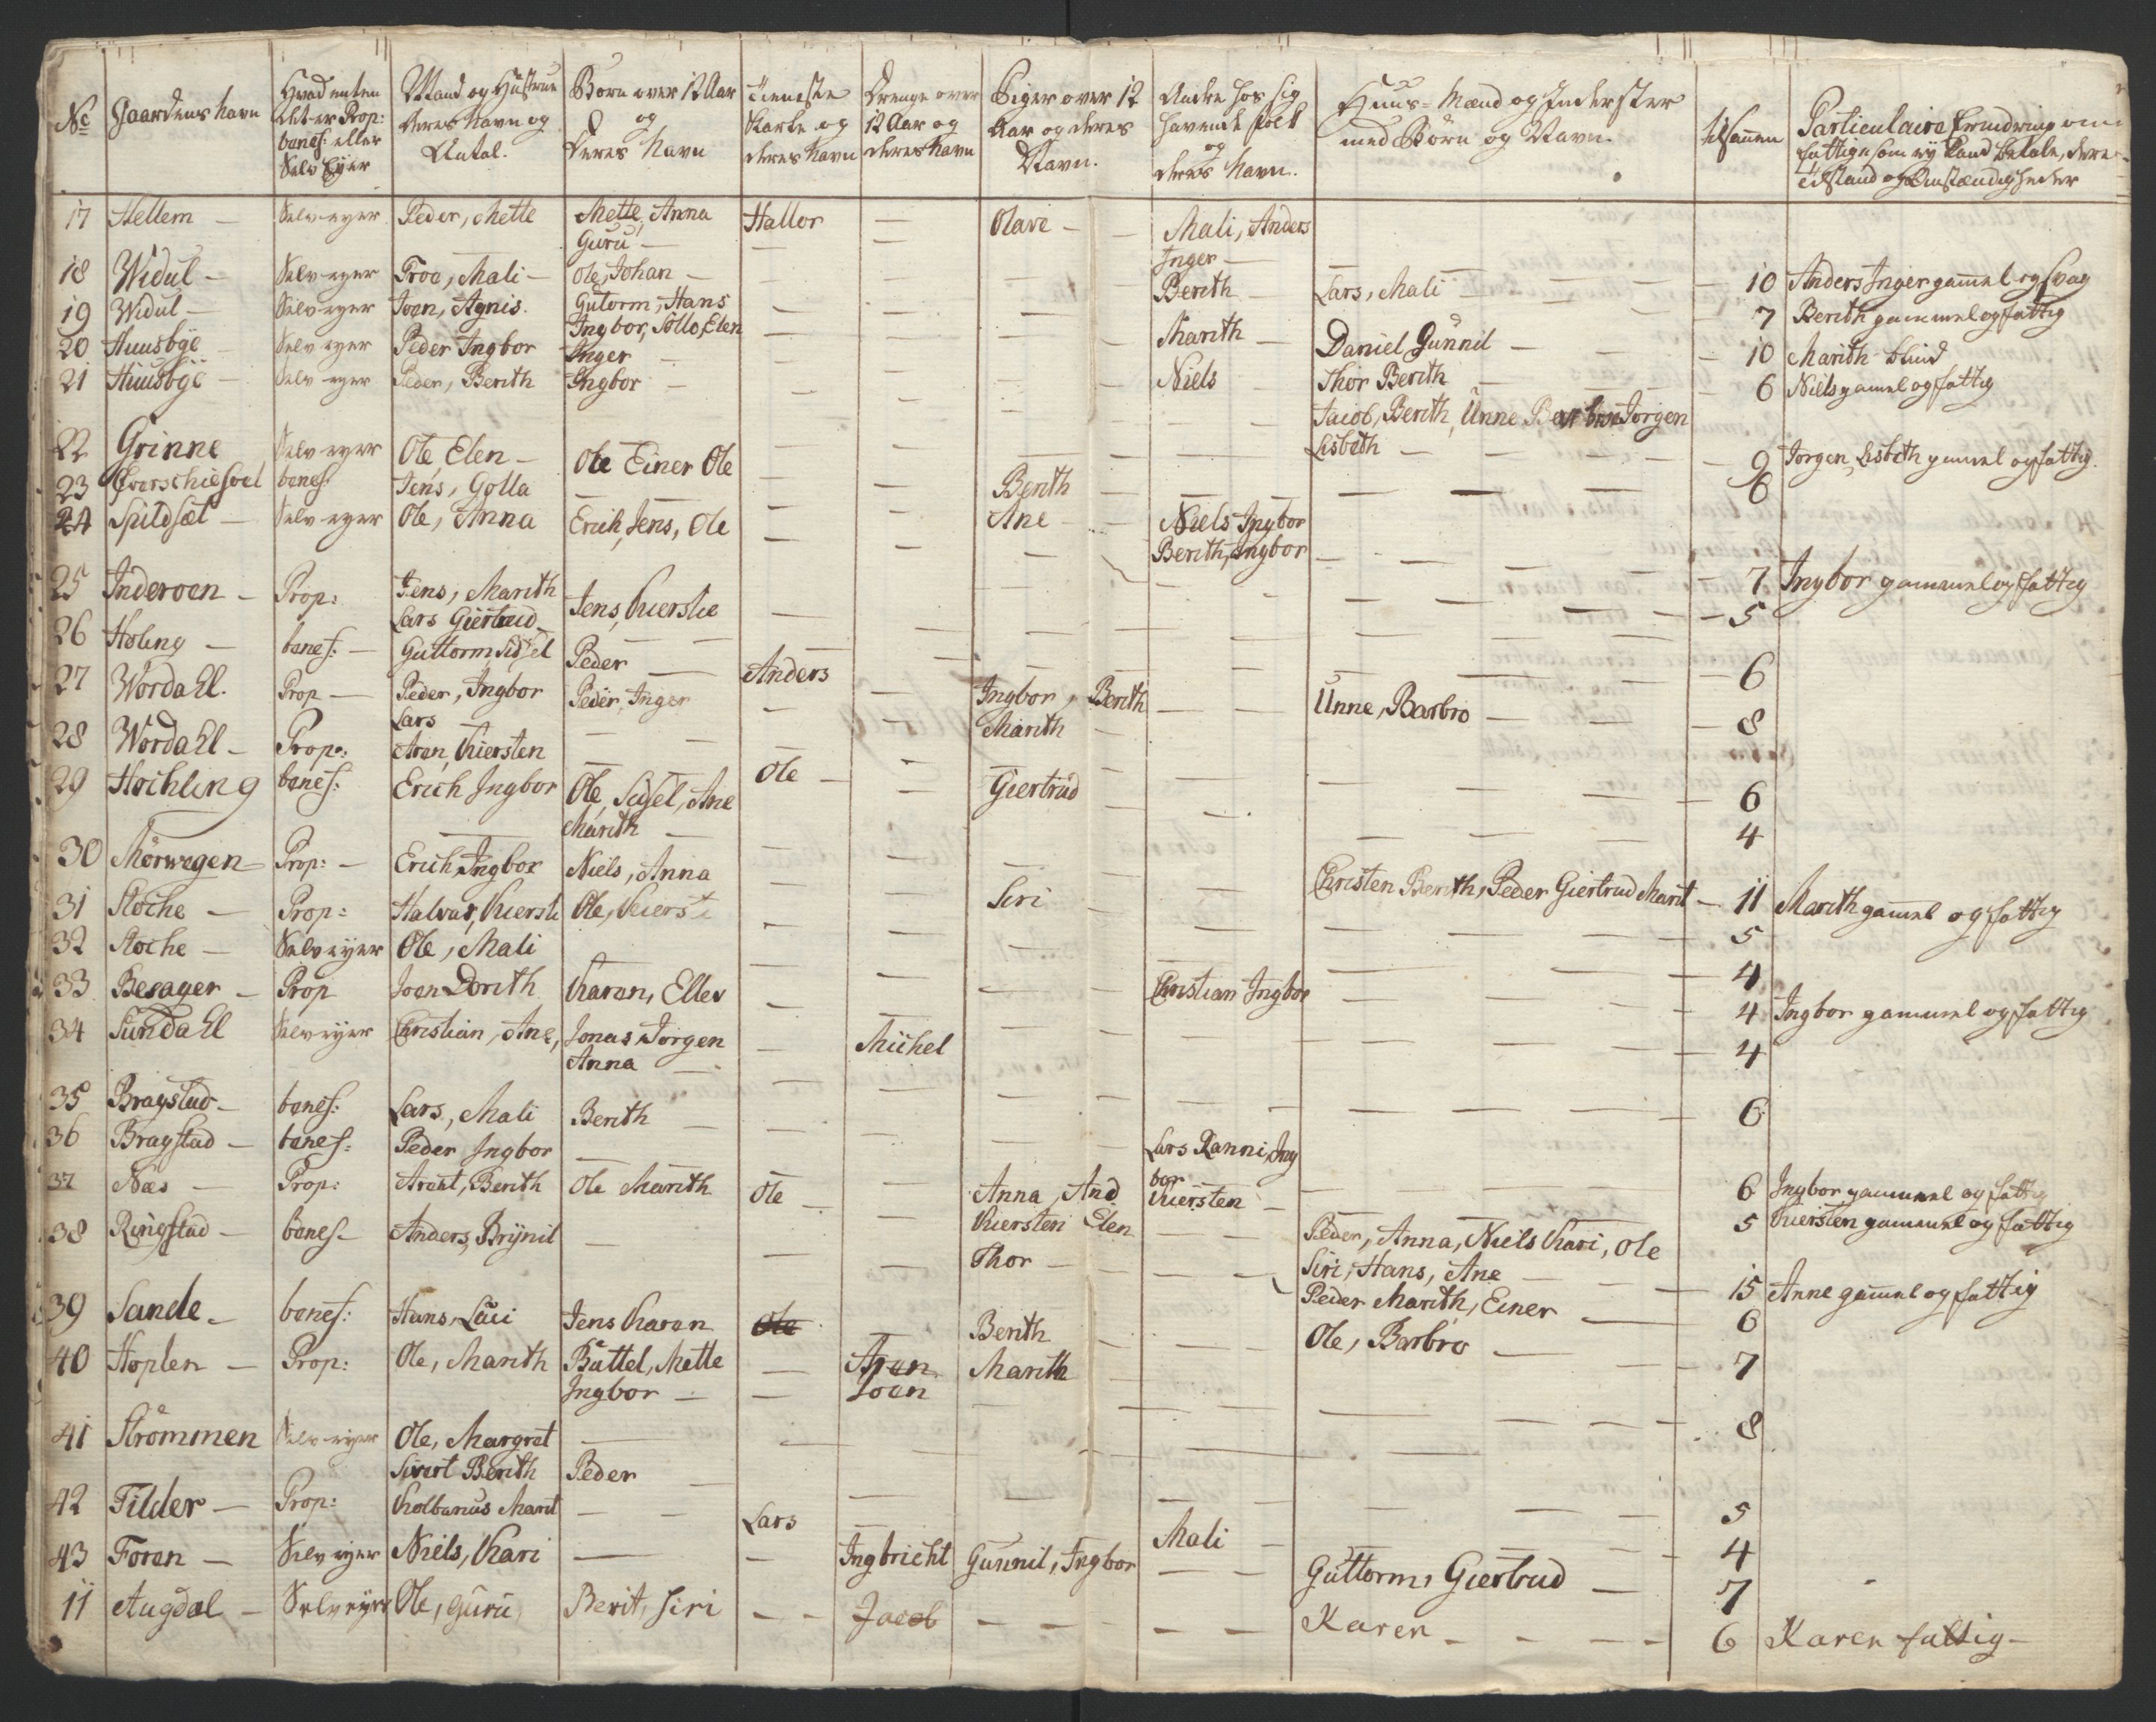 No Gaardens Navn Hvad enten det er Prop: benef: eller Selv Eyer Mand og Hustrue deres Navn og Antal. Børn over 12 Aar og deres Navn Tieneste Karle og deres Navn Drenge over 12 Aar og deres Navn Piger over 12 Aar og deres Navn. Andre hos sig havende folk og deres Navn. Huus-Mænd og Inderster med Børn og Navn. tilsamen Particulaire Erindring om fattige som ey kand betale, deres tilstand og Omstændigheder
17 Hellem — Selv-eyer Peder, Mette Mette, Anna Hallor — Olave — Mali, Anders
Guru — Inger —
18 Widul — Selv-eyer Troe, Mali — Ole, Johan — Berith Lars, Mali — 10 Anders Inger gammel og svag
19 Widul — Selv-eyer Joen, Agnis. Gutorm, Hans — 7 Berith gammel og fattig
Ingbor, Sollo, Elen
20 Huusbye Selv-eyer Peder Ingbor Inger — Marith — Daniel Gunnil — 10 Marith blind
21 Huusbye — Selv-eyer Peder, Berith Ingbor — Niels Thor Berith — 6 Niels gamel og fattig
Jacob, Berith, Unne Barbro Jorgen
22 Grinne Selv-eyer Ole, Elen — Ole Einer Ole Lisbeth — 9 Jorgen, Lisbeth gammel og fattig.
23 benef: Jens, Golla — Berith — 6
24 Spildsæt — Selv-eyer Ole, Anna Erich, Jens, Ole — Ane — Niels Ingbor
Berith, Ingbor — 7 Ingbor gammel og fattig
25 Inderoen — Prop: Jens, Marith Jens, Kierstie — 5
Lars Giertrud
26 Holing — benef: — Guttorm, Sidsel Peder — Anders — 6
27 Wordahl. Prop — Peder, Ingbor Peder, Inger — Ingbor, Berith — Unne, Barbro — 8
Lars — Marith
28 Wordahl — Prop: Aren, Kiersten — Ole — 6
29 Hochling benef: Erich Ingbor Ole, Sidsel, Ane Giertrud — 4
Marith —
30 Norwegen — Prop: — Erich, Ingbor Niels, Anna — Christen Berith, Peder Giertrud Marit — 11 Marith gammel og fattig
31 Stoche — Prop: Halvar, Kiersti Ole, Kiersti — Siri — 5
32 Stoche — Selv-eyer Ole, Mali — 4
33 Besager — Prop Joen Dorith Karen, Ellev — Christian Ingbor — 4 Ingbor gammel og fattig
34 Sundahl Selv-eyer Christian, Ane, Jonas, Jorgen — Michel — 4
Anna —
35 Bragstad — benef: Lars, Mali Berith — 6
36 Bragstad — benef: Peder Ingbor — Lars Ranni, Ing
bor — 6 Ingbor gammel og fattig
37 Næs — Prop: Arent, Berith Ole Marith Ole — Anna, And Kiersten — 5 Kiersten gammel og fattig
Kiersten Elen
38 Ringstad — benef — Anders, Brynil — Thor — Peder, Anna, Niels Kari, Ole
Siri, Hans, Ane — 15 Anne gammel og fattig
39 Sande — benef: Hans, Luci Jens Karen Ole Berith — Peder Marith, Einer — 6
40 Hoplen — Prop: Ole, Marith Battel, Mette — Aren Marith — Ole, Barbro — 7
Ingbor — Joen
41 Strømmen Selv-eyer Ole, Margret — 8
Sivert Berith Peder —
42 Tilder — Prop: Kolbanus Marit — Lars — 5
43 Foren — Selv-eyer Niels, Kari — Ingbricht Gunnil, Ingbor Mali — 4
Guttorm, Giertrud — 7
11 Augdal — Selveyer Ole, Guru, Berit, Siri — Jacob — Karen — 6 Karen fattig —